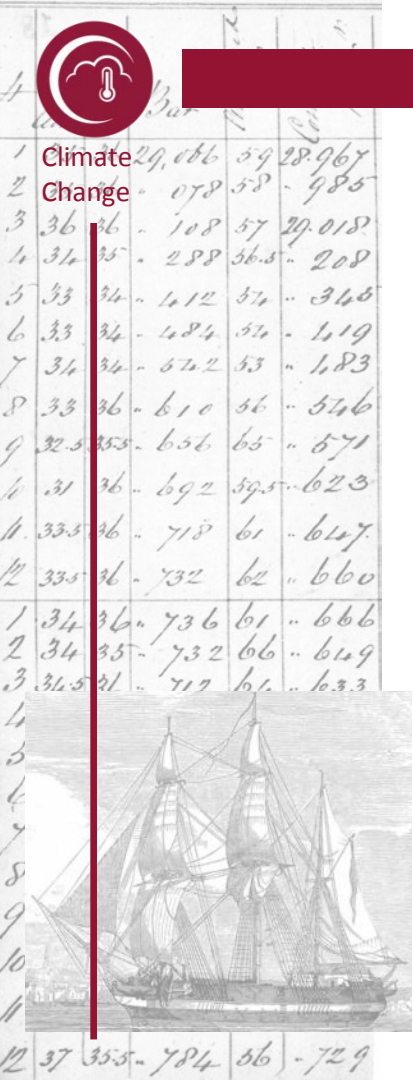 Bar
Climate
Change
1 36 29,066 59 28.967
2 " 078 58 " 985
3 36 36 " 108 57 29.018
4 34 35 " 288 56.5 " 208
5 33 34 " 412 54 " 345
6 33 34 " 484 54 " 419
7 34 34 " 542 53 " 483
8 33 36 " 610 56 " 546
9 32.5 35.5 " 656 65 " 571
10 31 36 " 692 59.5 " 623
11 33.5 36 " 718 61 " 647
12 33.5 36 " 732 62 " 660
1 34 36 " 736 61 " 666
2 34 35 " 732 66 " 649
3 34.5 " 712 64 " 633
4
5
6
7
8
9
10
11
12 37 35.5 " 784 56 " 729